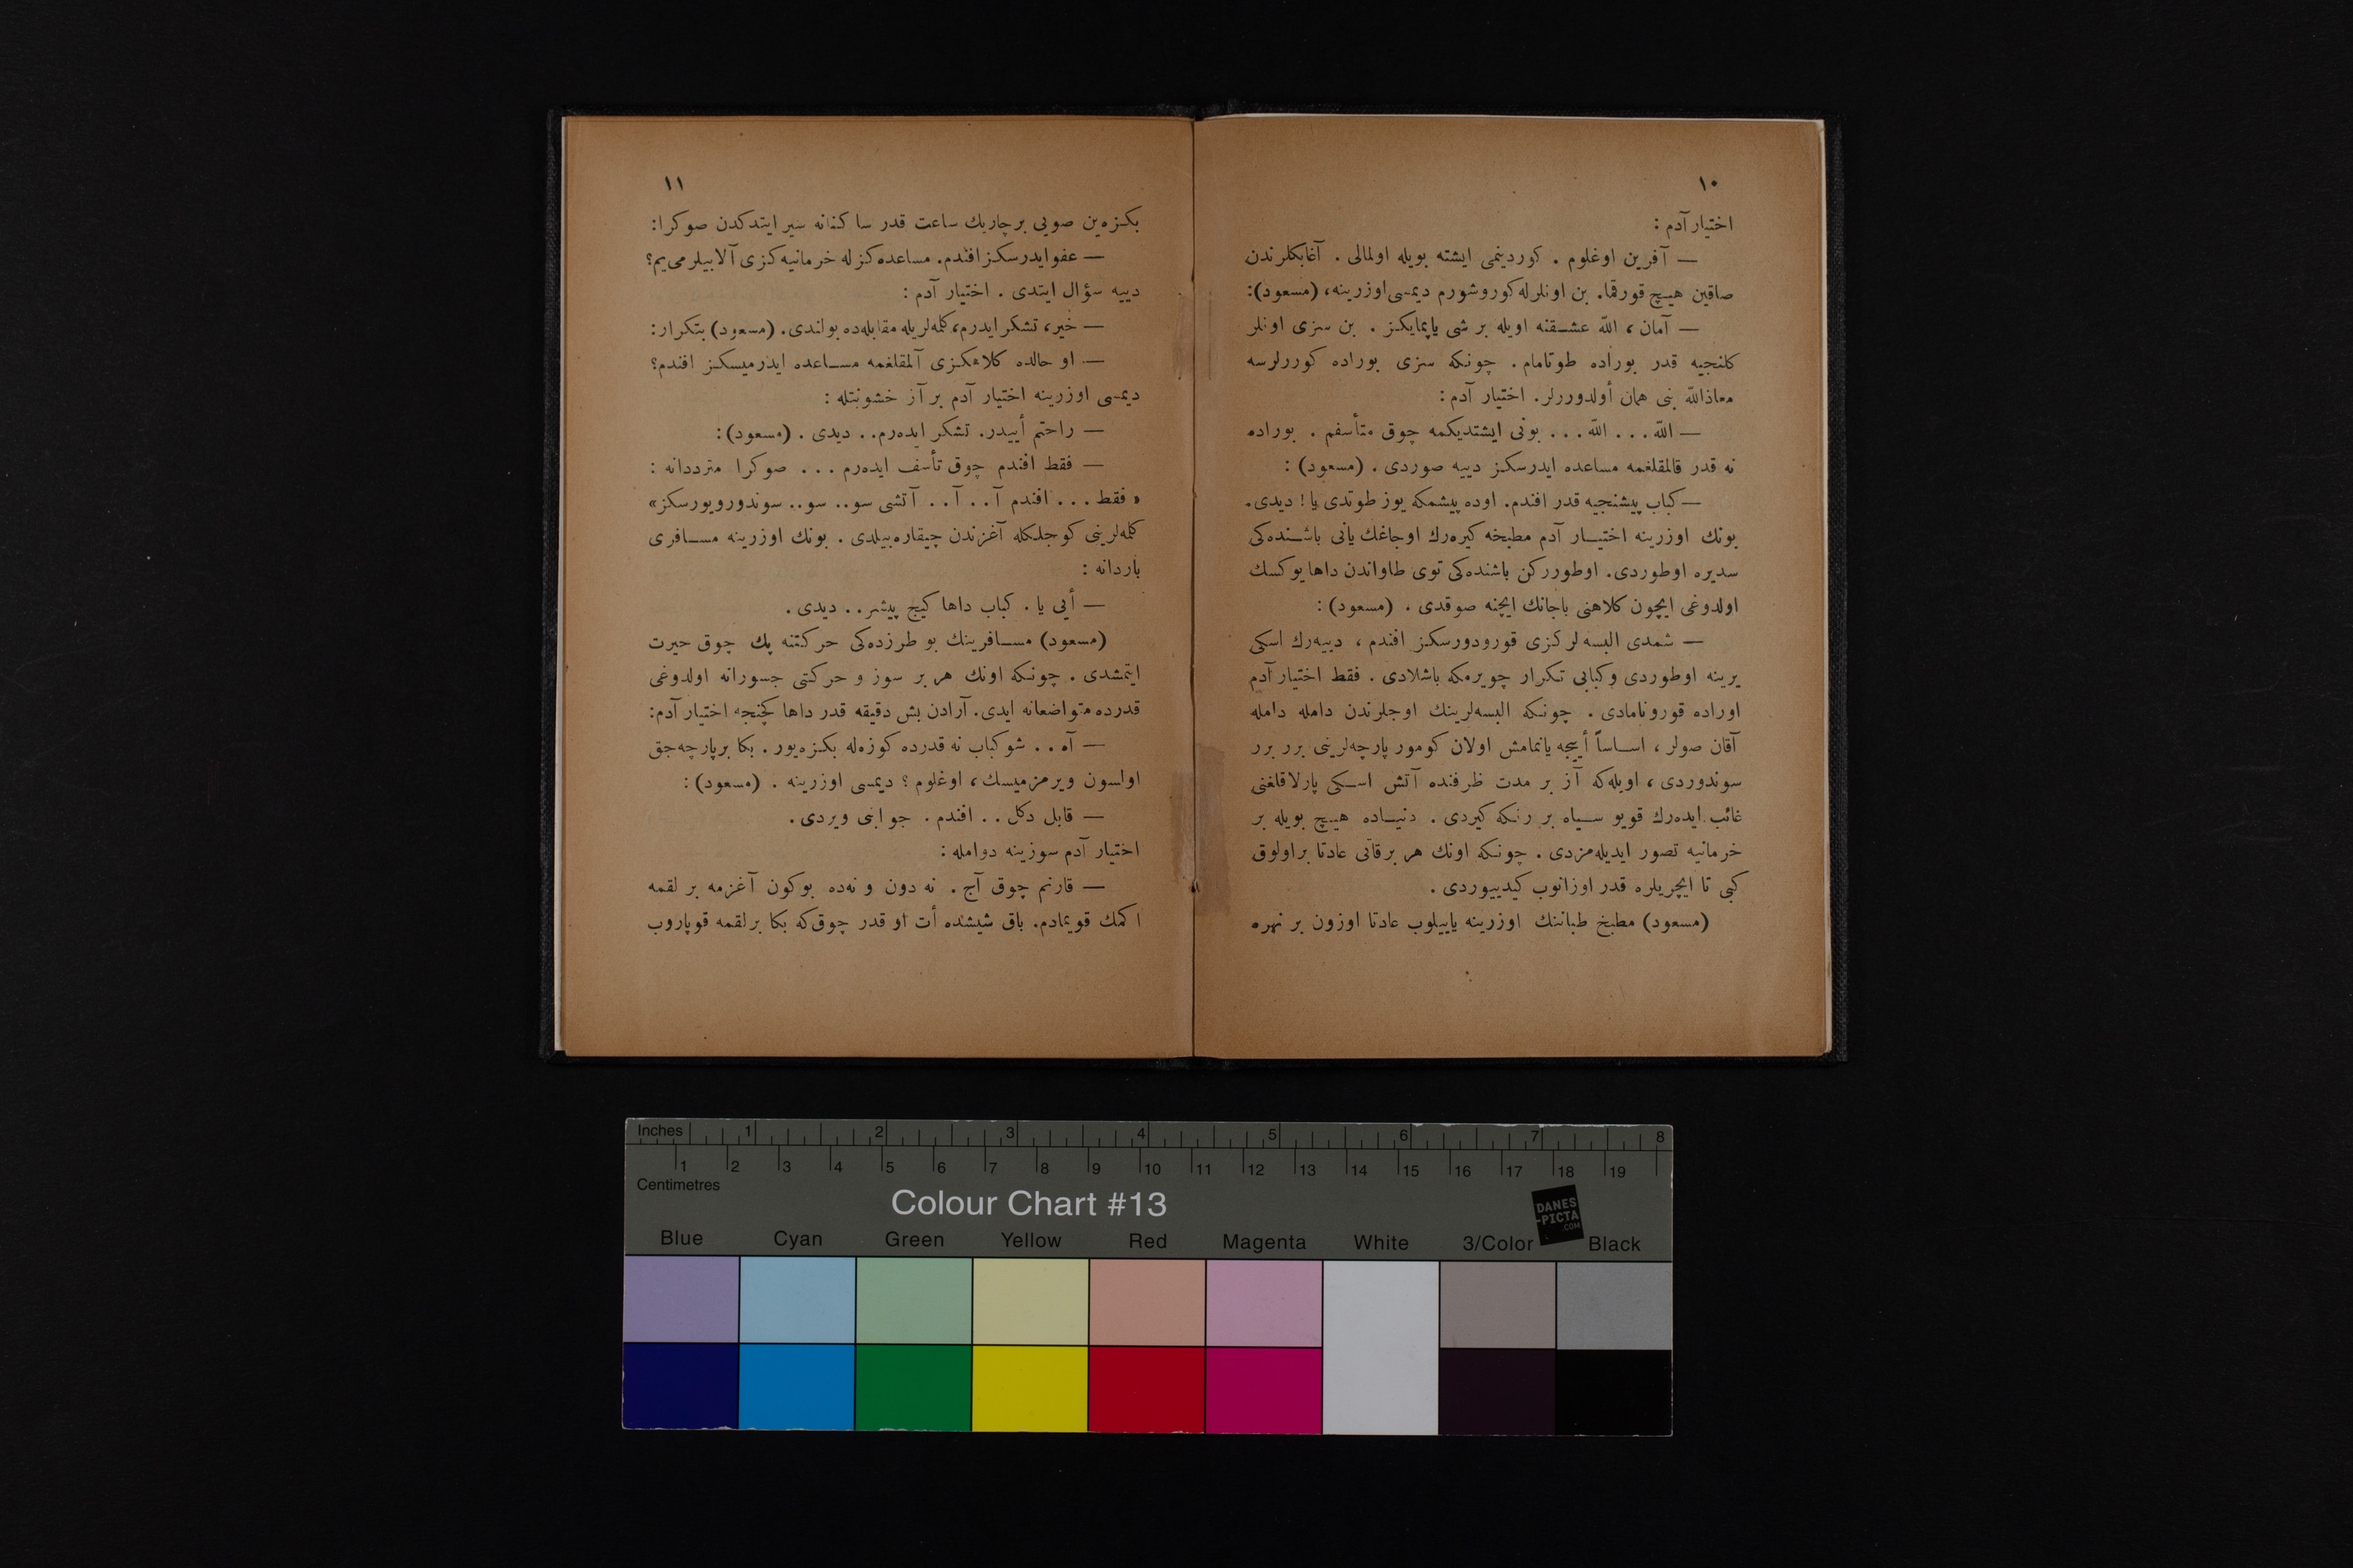 ١٠
اختيار آدم :
— آفرين اوغلوم . كوردينمى ايشته بويله اولمالى . آغابكلرندن
صاقين هيچ قورقما. بن اونلرله كوروشورم ديمسى اوزرينه، (مسعود):
— آمان ، الله عشقنه اويله بر شى ياپمايكز . بن سزى اونلر
كلنجيه قدر بوراده طوتامام . چونكه سزى بوراده كوررلرسه
معاذالله بنى همان أولدوررلر. اختيار آدم :
— الله ... الله ... بونى ايشتديكمه چوق متأسفم . بوراده
نه قدر قالمقلغمه مساعده ايدرسكز دييه صوردى . (مسعود) :
— كباب پيشنجيه قدر افندم. اوده پيشمكه يوز طوتدى يا ! ديدى.
بونك اوزرينه اختيار آدم مطبخه كيره‌رك اوجاغك يانى باشنده‌كى
سديره اوطوردى. اوطوررکن باشنده‌كى توى طاواندن داها يوكسك
اولدوغى ايچون كلاهنى باجانك ايچنه صوقدى . (مسعود) :
— شمدى البسه لركزى قورودورسكز افندم ، دييه‌رك اسكى
يرينه اوطوردى وكبابى تكرار چويرمكه باشلادى . فقط اختيار آدم
اوراده قورونامادى . چونكه البسه‌لرينك اوجلرندن دامله دامله
آقان صولر ، اساساً أييجه يانمامش اولان كومور پارچه‌لرينى برر برر
سوندوردى ، اويله‌كه آز بر مدت ظرفنده آتش اسكى پارلاقلغنى
غائب ايده‌رك قويو سياه بر رنكه كيردى . دنياده هيچ بويله بر
خرمانيه تصور ايديله‌مزدى . چونكه اونك هر برقاتى عادتا براولوق
كبى تا ايچريلره قدر اوزانوب كيدييوردى .
(مسعود) مطبخ طباننك اوزرينه ياييلوب عادتا اوزون بر نهره
١١
بكزه‌ين صويى برچاريك ساعت قدر ساكتانه سير ايتدكدن صوكرا:
— عفو ايدرسكز افندم. مساعده كزله خرمانيه‌كزى آلابيلرمى‌يم؟
دييه سؤال ايتدى . اختيار آدم :
— خير، تشكر ايدرم، كلمه‌لريله مقابله‌ده بولندى. (مسعود) بتكرار:
— او حالده كلاهكزى آلمقلغمه مساعده ايدرميسكز افندم؟
ديمسى اوزرينه اختيار آدم بر آز خشونتله :
— راحتم أييدر. تشكر ايده‌رم.. ديدى . (مسعود):
— فقط افندم چوق تأسف ايده‌رم ... صوكرا مترددانه :
« فقط ... افندم آ.. آ.. آتشى سو.. سو.. سوندورويورسكز»
كلمه‌لرينى كوجلكله آغزندن چيقاره‌بيلدى . بونك اوزرينه مسافرى
باردانه :
— أيى يا . كباب داها كيج پيشر.. ديدى .
(مسعود) مسافرينك بو طرزده‌كى حركتنه پك چوق حيرت
ايتمشدى . چونكه اونك هر بر سوز و حركتى جسورانه اولدوغى
قدرده متواضعانه ايدى. آرادن بش دقيقه قدر داها كچنجه اختيار آدم:
— آه .. شو كباب نه قدرده كوزه‌له بكزه‌يور . بكا برپارچه‌جق
اولسون ويرمزميسك ، اوغلوم ؟ ديمسى اوزرينه . (مسعود) :
— قابل دكل .. افندم . جوابنى ويردى .
اختيار آدم سوزينه دوامله :
— قارنم چوق آج . نه دون و نه‌ده بوكون آغزمه بر لقمه
اكمك قويمادم. باق شيشده أت او قدر چوق‌كه بكا برلقمه قوپاروب
Inches 1 2 3 4 5 6 7 8
1 2 3 4 5 6 7 8 9 10 11 12 13 14 15 16 17 18 19
Centimetres
Colour Chart #13
DANES
-PICTA
.COM
Blue Cyan Green Yellow Red Magenta White 3/Color Black